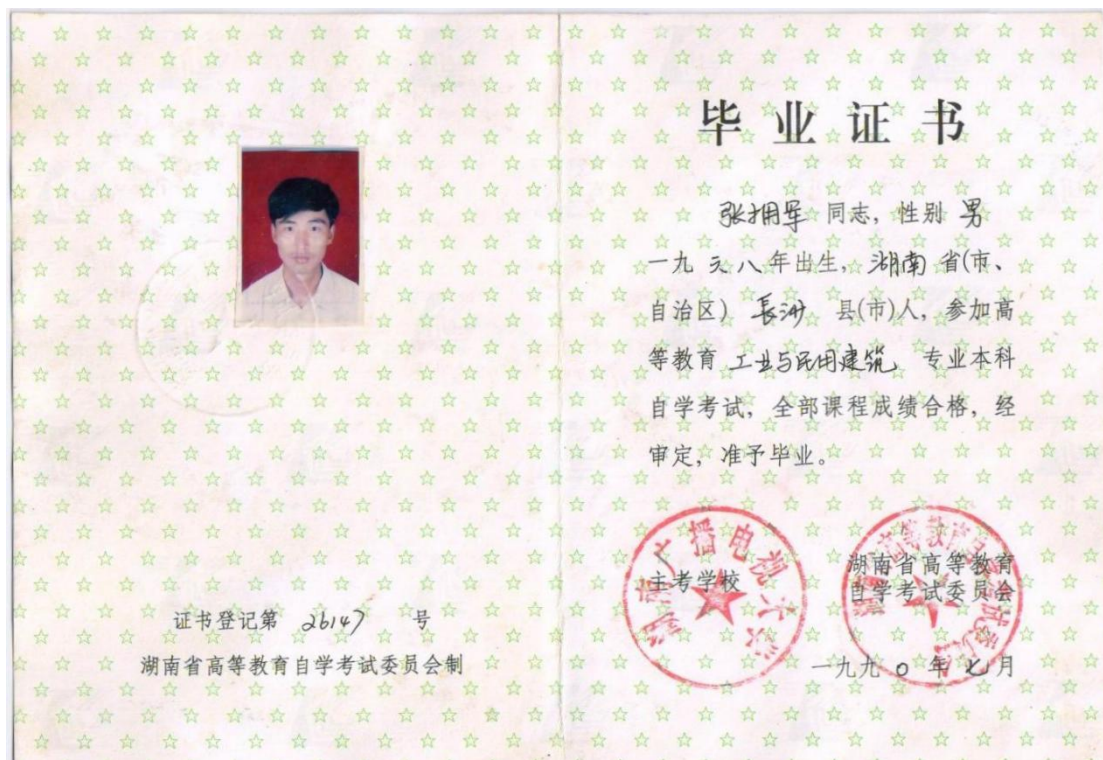 证书登记第 26147 号
湖南省高等教育自学考试委员会制
毕业证书
张拥军 同志，性别 男
一九六八年出生，湖南省(市、
自治区) 长沙 县(市)人，参加高
等教育 工业与民用建筑 专业本科
自学考试，全部课程成绩合格，经
审定，准予毕业。
湖南广播电视大学
主考学校
湖南省高等教育
自学考试委员会
一九九0年七月